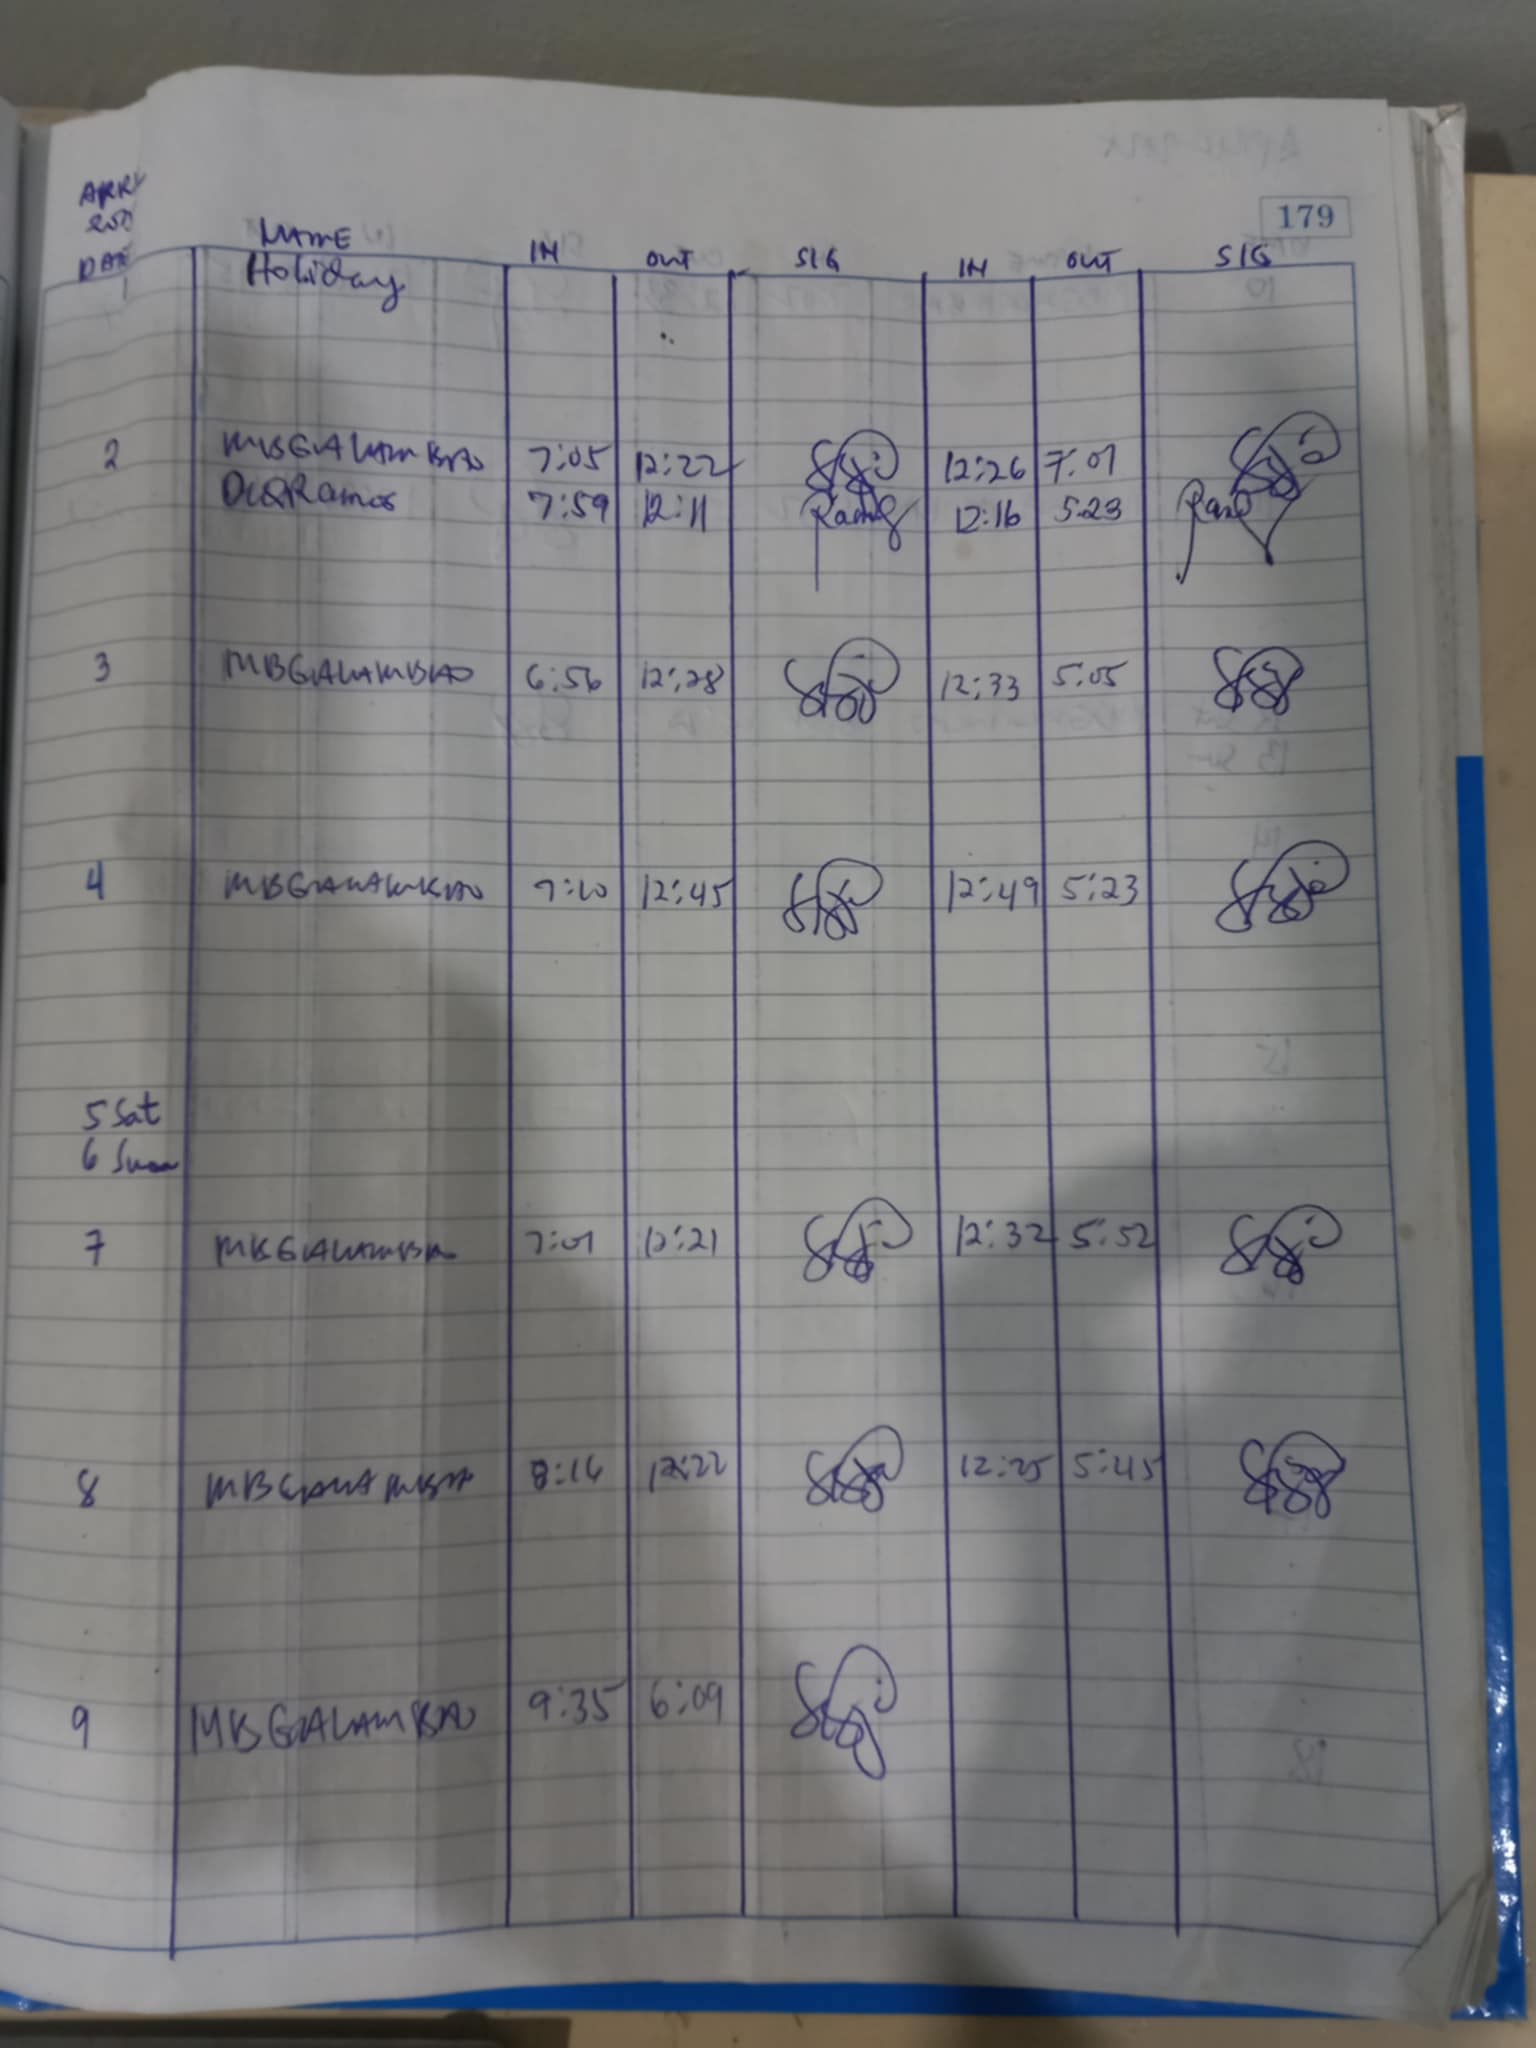 179
DATE NAME IN OUT SIG IN OUT SIG
1 Holiday
2 MBGALAMBAO 7:05 12:22 12:26 7:01
DLQRamos 7:59 12:11 12:16 5:23
3 MBGALAMBAO 6:56 12:28 12:33 5:05
4 MBGALAMBAO 7:10 12:45 12:49 5:23
5 Sat
6 Sun
7 MBGALAMBAO 7:01 12:21 12:32 5:52
8 MBGALAMBAO 8:16 12:22 12:25 5:45
9 MBGALAMBAO 9:35 6:09